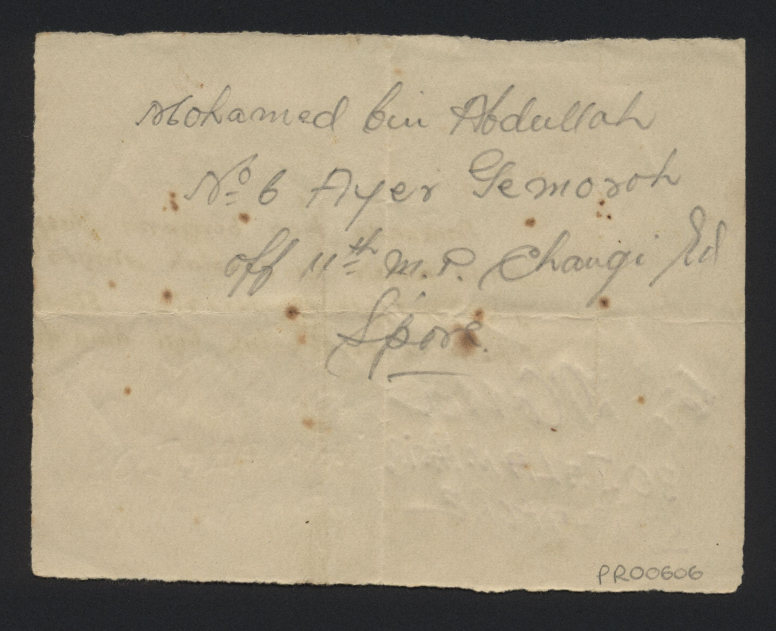 Mohamed bin Abdullah
No 6 Ayer Gemoroh
off 11th m.p. Changi Rd
S'pore.
PR00606